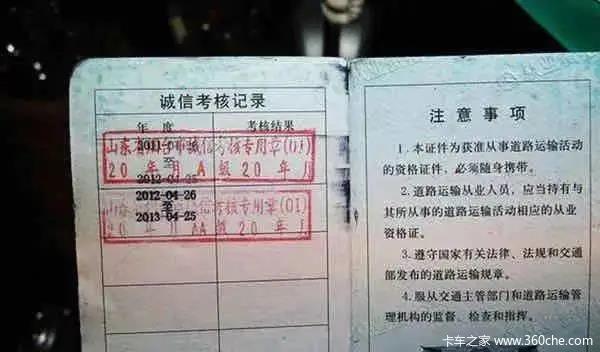 诚信考核记录
年 度
考核结果
至
2012-04-25
20 年 A 级 20 年 月
2012-04-26
至
2013-04-25
信考核专用章(01)
20 年 月 AA 级 20 年 月
注意事项
1.本证件为获准从事道路运输活动
的资格证件，必须随身携带。
2.道路运输从业人员，应当持有与
其所从事的道路运输活动相应的从业
资格证。
3.遵守国家有关法律、法规和交通
部发布的道路运输规章。
4.服从交通主管部门和道路运输管
理机构的监督、检查和指挥。
卡车之家 www.360che.com